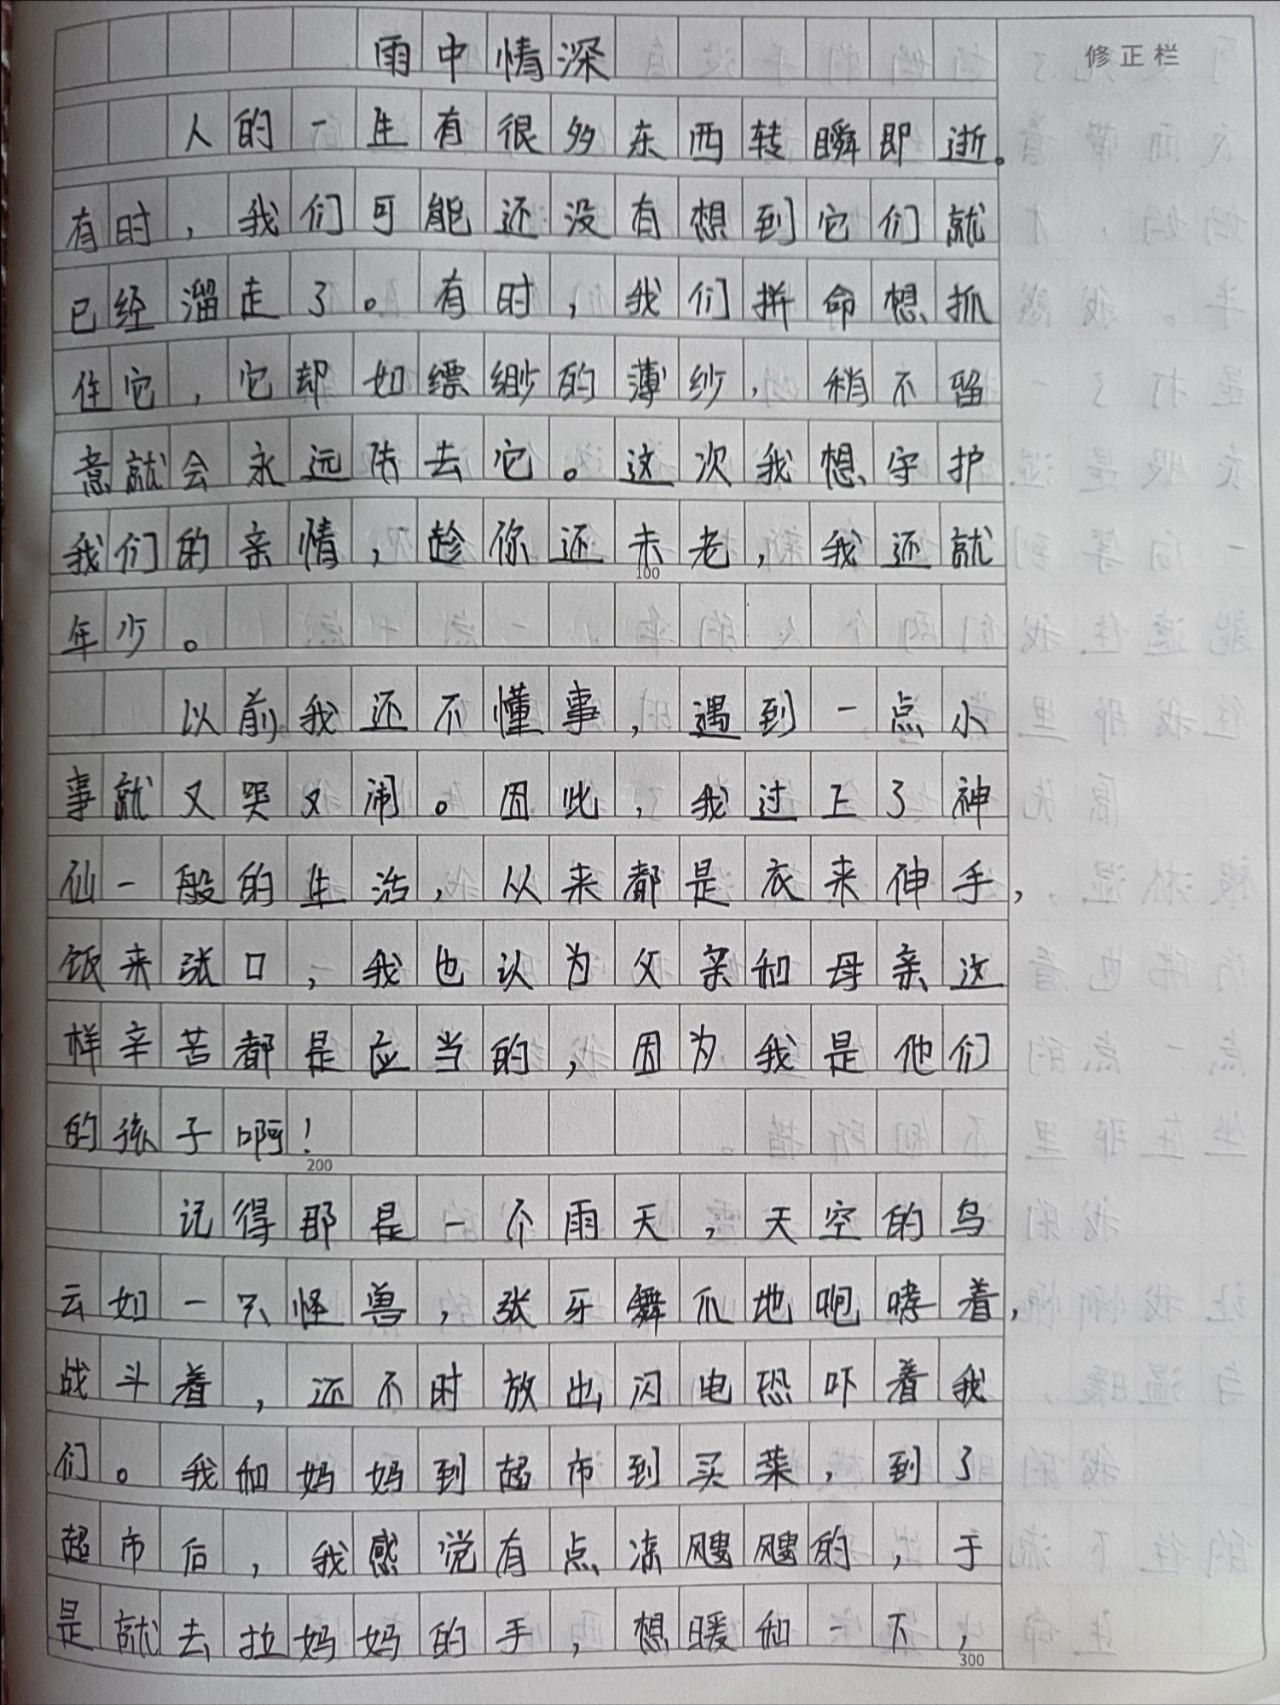 雨中情深
修正栏
人的一生有很多东西转瞬即逝。
有时，我们可能还没有想到它们就
已经溜走了。有时，我们拼命想抓
住它，它却如缥缈的薄纱，稍不留
意就会永远失去它。这次我想守护
我们的亲情，趁你还未老，我还就
100
年少。
以前我还不懂事，遇到一点小
事就又哭又闹。因此，我过上了神
仙一般的生活，从来都是衣来伸手，
饭来张口，我也认为父亲和母亲这
样辛苦都是应当的，因为我是他们
的孩子啊！
200
记得那是一个雨天，天空的乌
云如一只怪兽，张牙舞爪地咆哮着，
战斗着，还不时放出闪电恐吓着我
们。我和妈妈到超市到买菜，到了
超市后，我感觉有点凉飕飕的，于
是就去拉妈妈的手，想暖和一下，
300